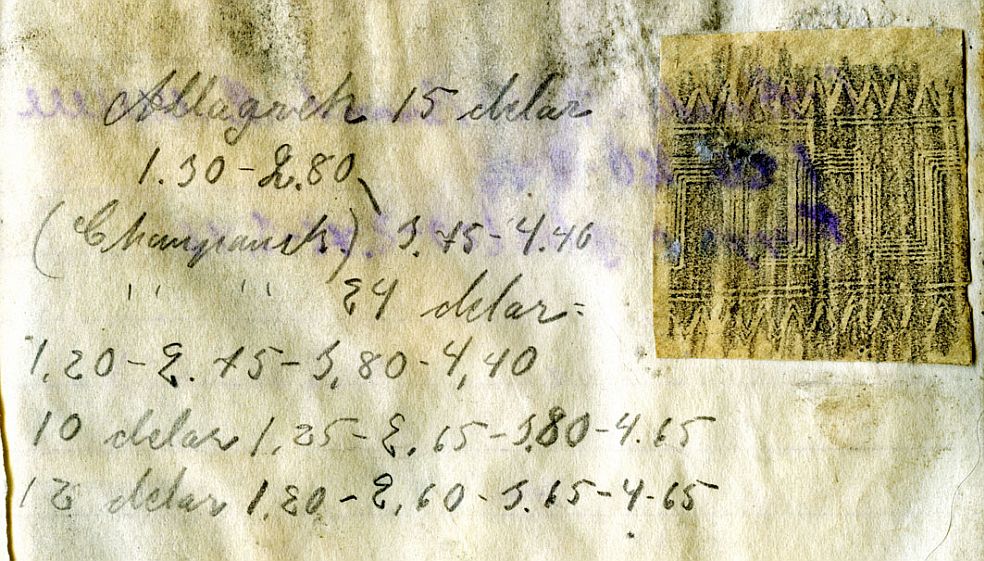 15 delar
1.30 - 2.80
3.75 - 4.40
" " 24 delar =
1,20 - 2.75 - 3,80 - 4,40
10 delar 1,25 - 2,65 - 3,80 - 4.65
12 delar 1,20 - 2,60 - 3.65 - 4.65